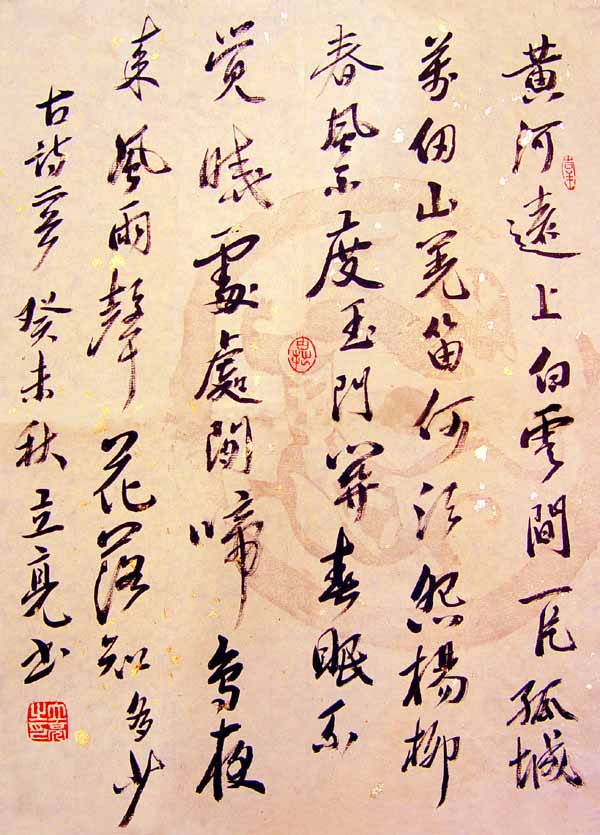 黃河遠上白雲間一片孤城
萬仞山羌笛何須怨楊柳
春風不度玉門關春眠不
覺曉處處聞啼鳥夜
來風雨聲花落知多少
古詩二首 癸未秋立亮书
立亮之印